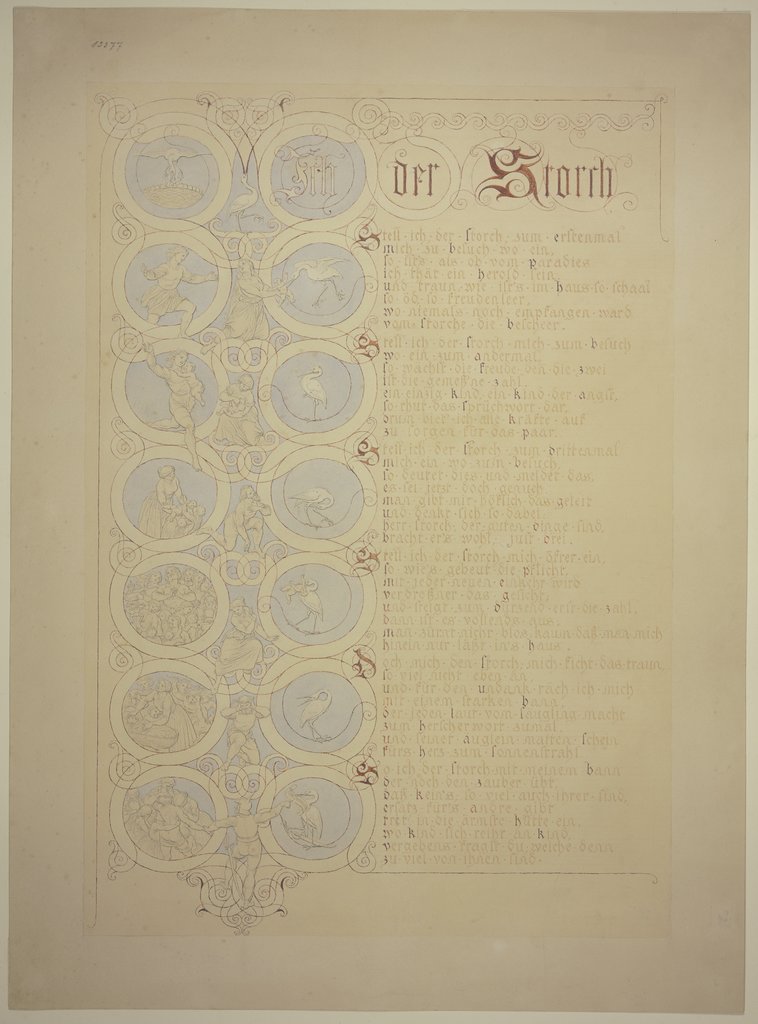 13577
Ich der Storch
Stell ich der Storch zum erstenmal
mich zu besuch wo ein,
so ist's als ob vom paradies
ich thät ein herold sein
und traun wie ist's im haus so schaal
so öd so freudenleer,
wo niemals noch empfangen ward
vom storche die bescheer.
Stell ich der storch mich zum besuch
wo ein zum andermal
so wächst die freude den die zwei
ist die gemeß'ne zahl.
ein einzig kind ein kind der angst,
so thut das spruchwort dar,
drum biet ich alle kräfte auf
zu sorgen für das paar.
Stell ich der storch zum drittenmal
mich ein wo zum besuch,
so deutet dies und meldet das,
es sei jetzt doch genuch
man gibt mir höflich das geleit
und denkt sich so dabei
herr storch der guten dinge sind,
bracht er's wohl, just drei.
Stell ich der storch mich öfter ein,
so wie's gebeut die pflicht,
mit jeder neuen einkehr wird
verdroßner das gesicht,
und steigt zum dutzend erst die zahl,
dann ist es vollends aus
man zürnt nicht blos kaum daß man mich
hinein nur läßt in's haus.
Doch mich den storch mich ficht das traun
so viel nicht eben an
und für den undank räch ich mich
mit einem starken bann
der jeden laut vom säugling macht
zum herscherwort zumal
und seiner äuglein matten schein
fürs herz zum sonnenstrahl
So ich der storch mit meinem bann
der noch den zauber übt
daß kein's, so viel auch ihrer sind,
ersatz für's andre gibt
tret in die ärmste hütte ein,
wo kind sich reiht an kind,
vergebens fragst du welche denn
zu viel von ihnen sind.